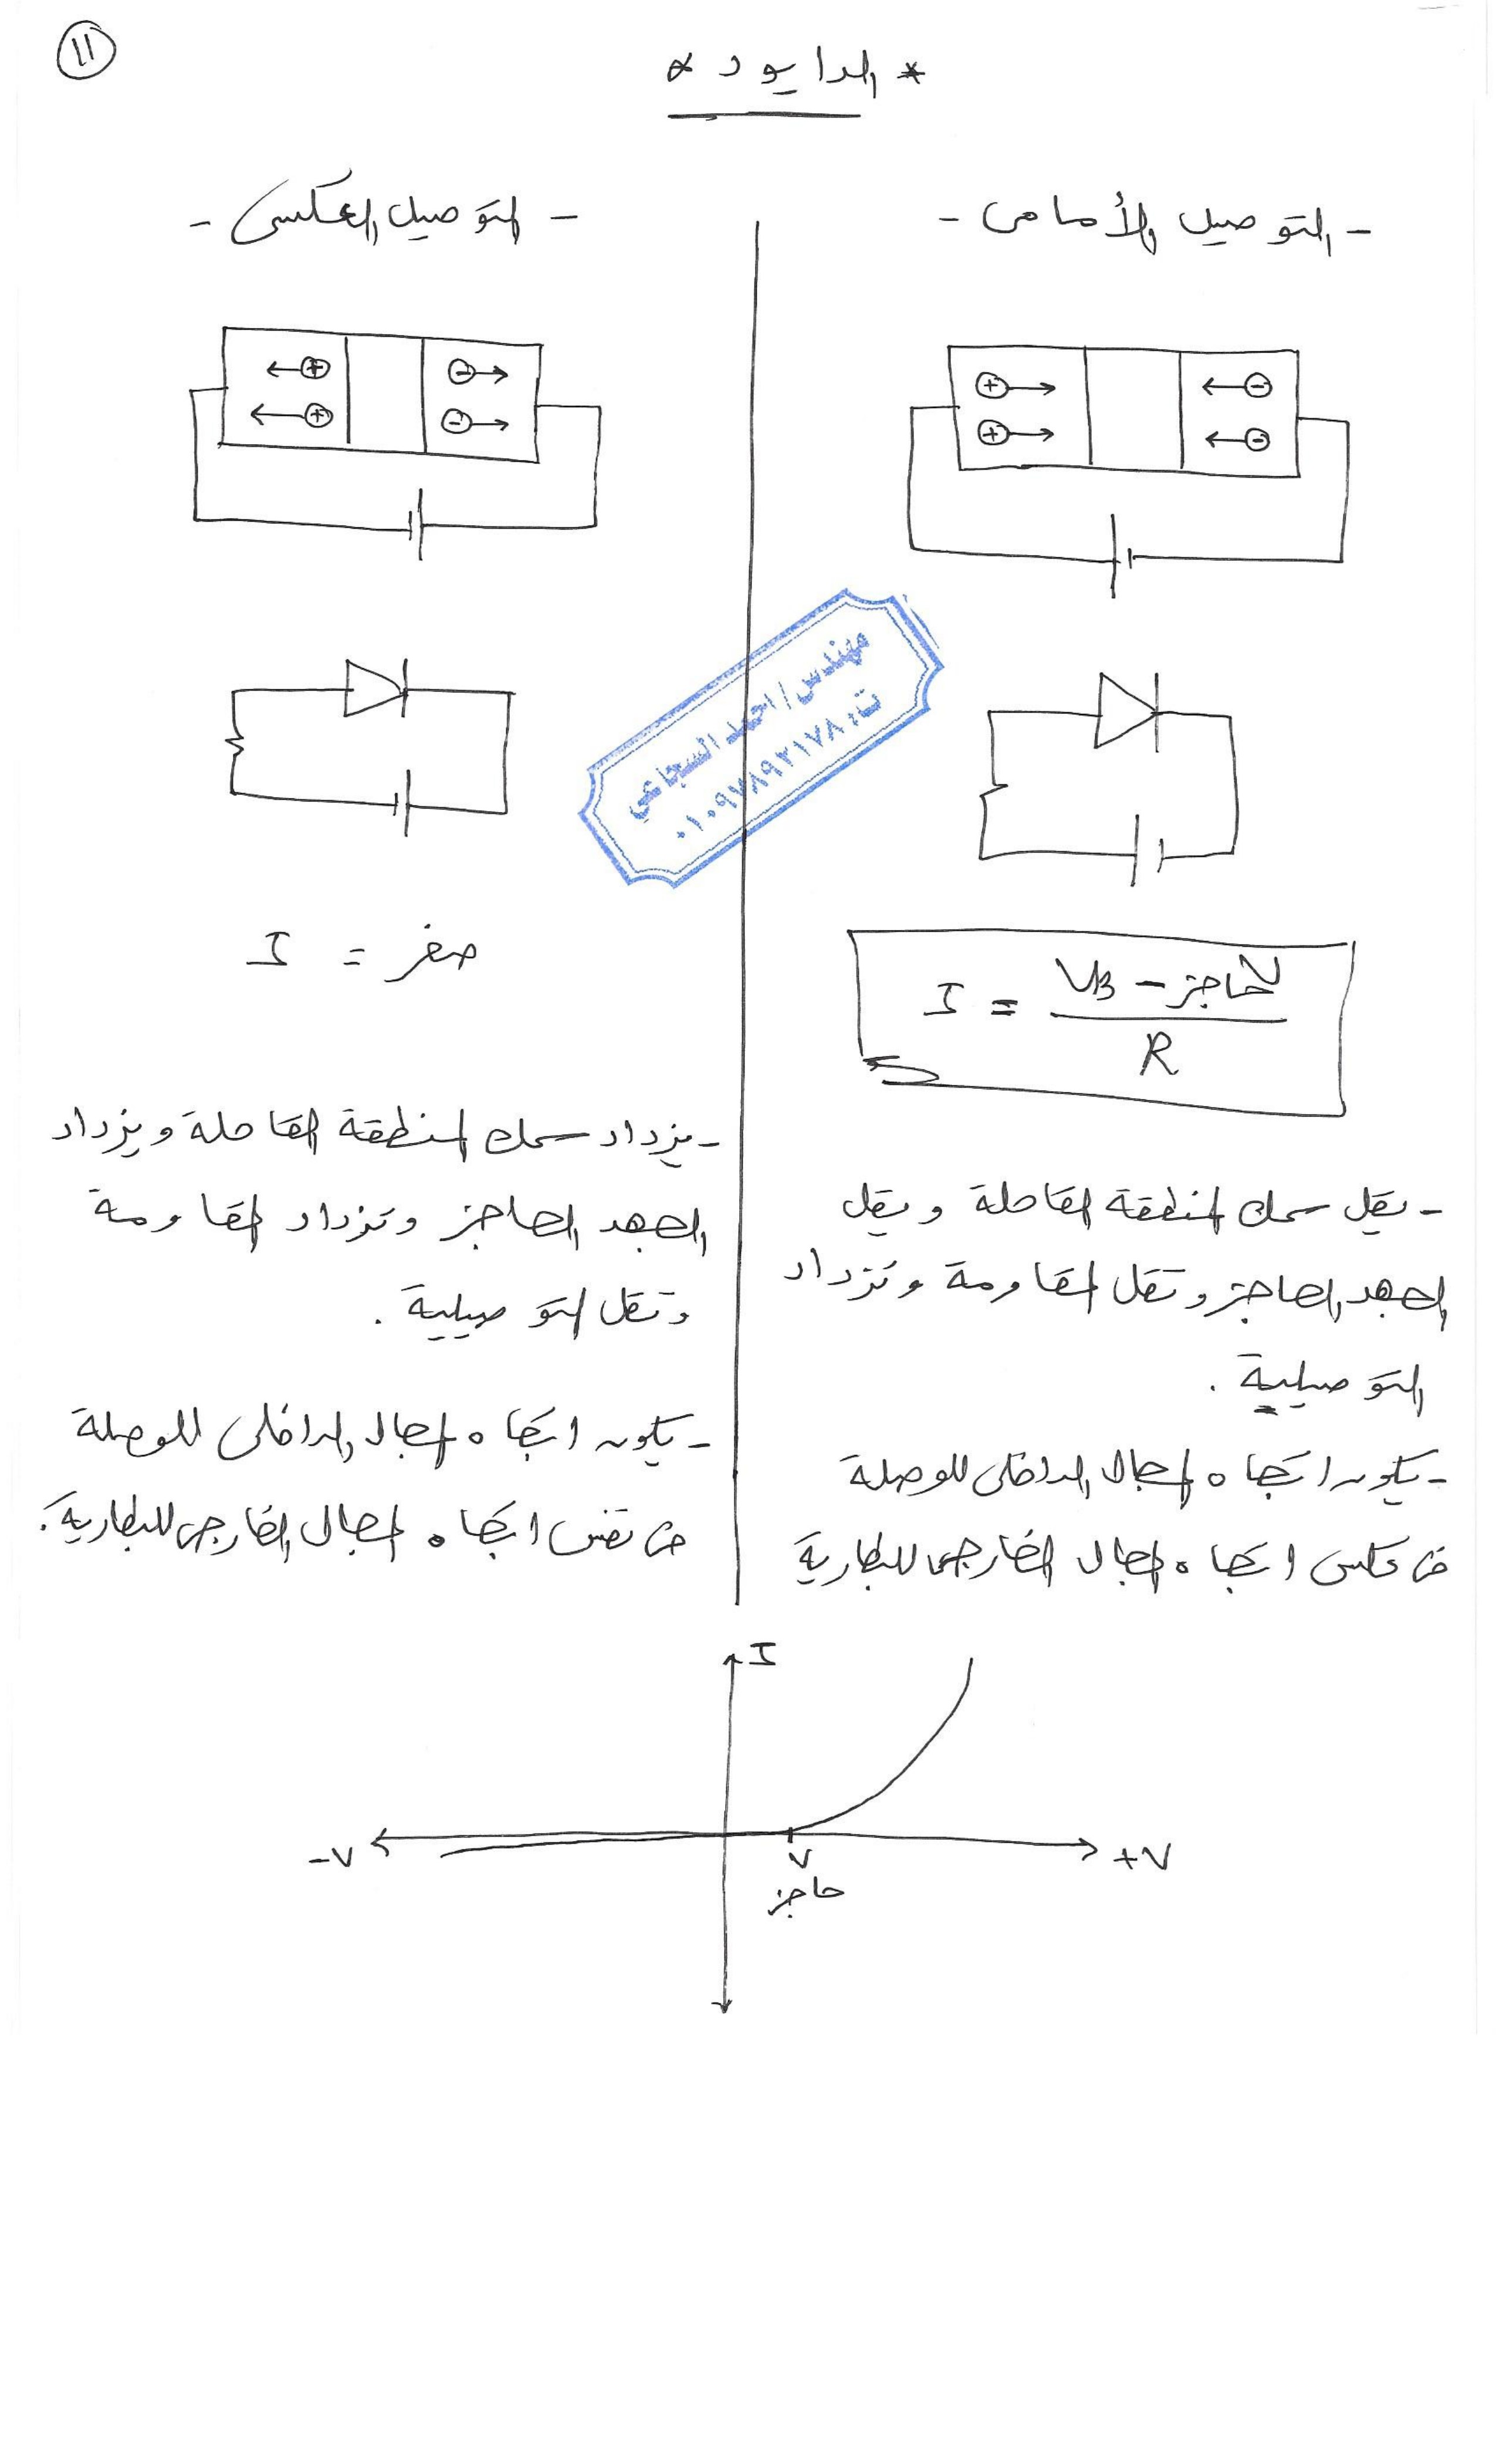 ١١
* الدايود *
- التوصيل الأمامى -
I = VB - Vحاجز / R
- يقل سمك المنطقة القاحلة ويقل
الجهد الحاجز وتقل المقاومة وتزداد
التوصيلية .
- يكون اتجاه المجال الداخلى للوصلة
فى عكس اتجاه المجال الخارجى للبطارية
- التوصيل العكسى -
I = صفر
- يزداد سمك المنطقة القاحلة ويزداد
الجهد الحاجز وتزداد المقاومة
وتقل التوصيلية .
- يكون اتجاه المجال الداخلى للوصلة
فى نفس اتجاه المجال الخارجى للبطارية .
مهندس / احمد السجاعي
ت: ٠١٠٩٧٨٩٢١٧٨
I
-V
V
حاجز
+V